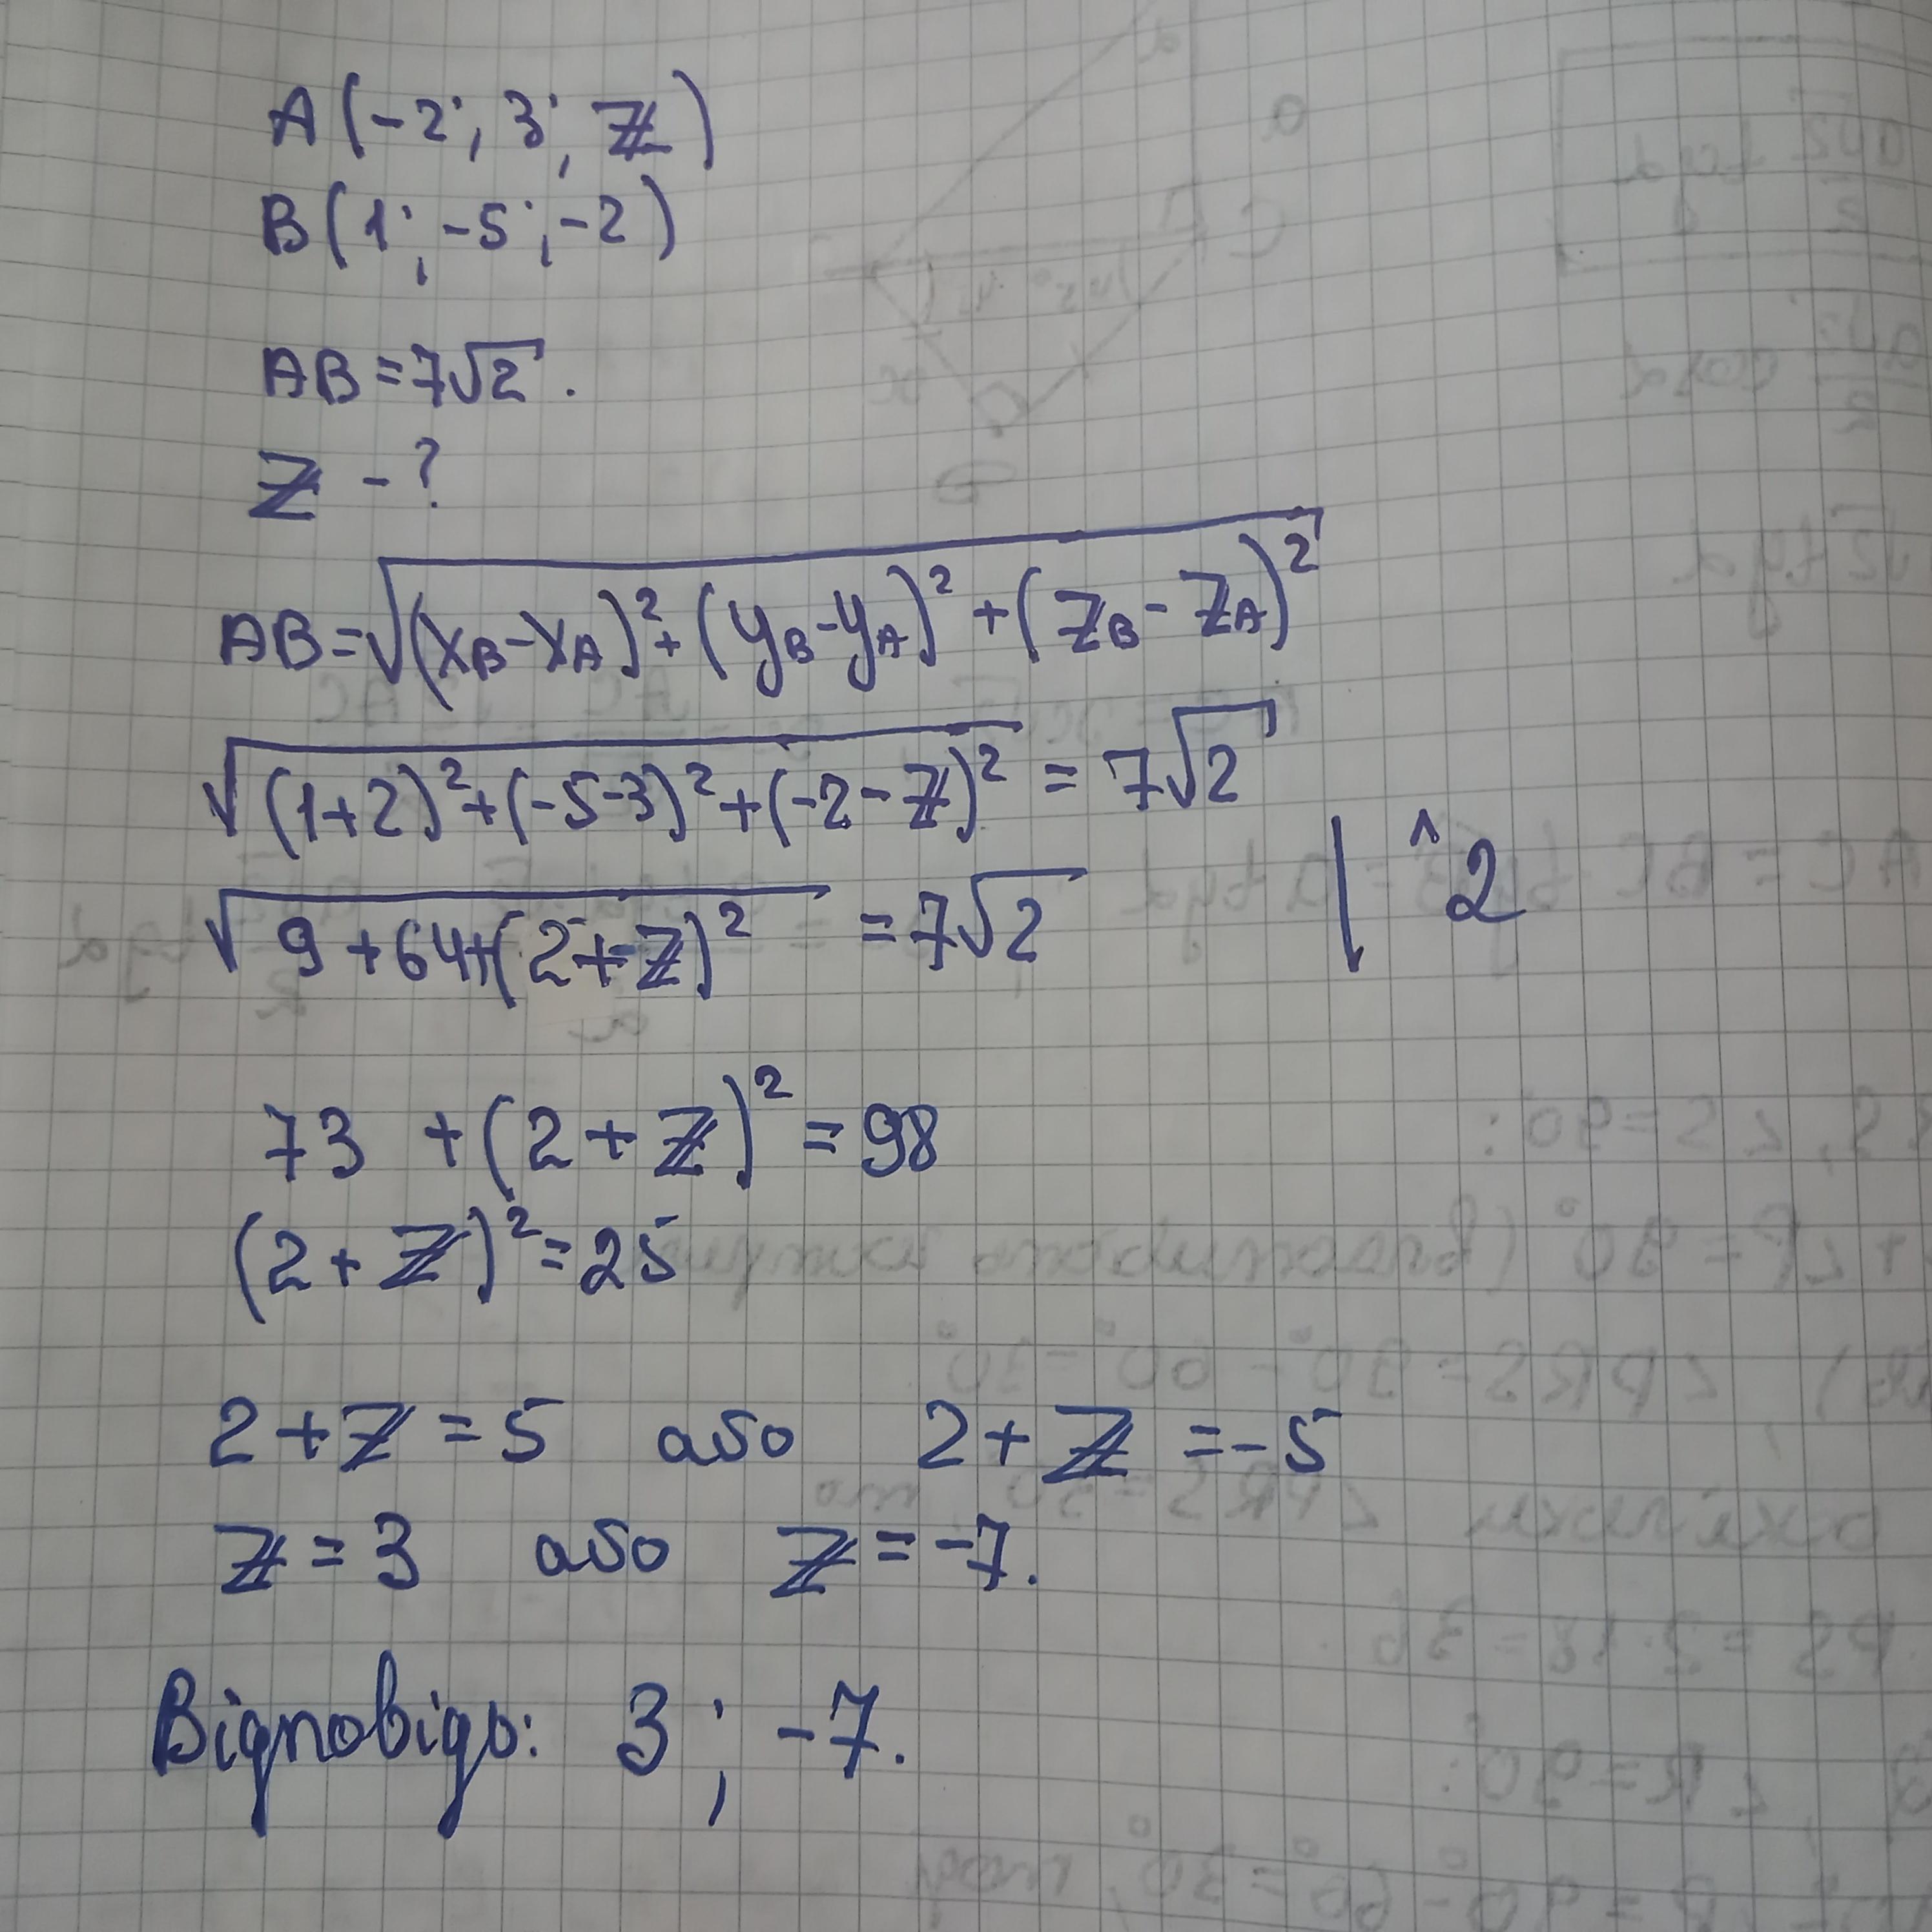 A(-2; 3; z)
B(1; -5; -2)
AB=7√2.
z - ?
AB=√(x_B-x_A)²+(y_B-y_A)²+(z_B-z_A)²
√(1+2)²+(-5-3)²+(-2-z)² = 7√2
√9+64+(2+z)² =7√2 | ^2
73 +(2+z)²=98
(2+z)²=25
2+z=5 або 2+z=-5
z=3 або z=-7.
Відповідь: 3; -7.